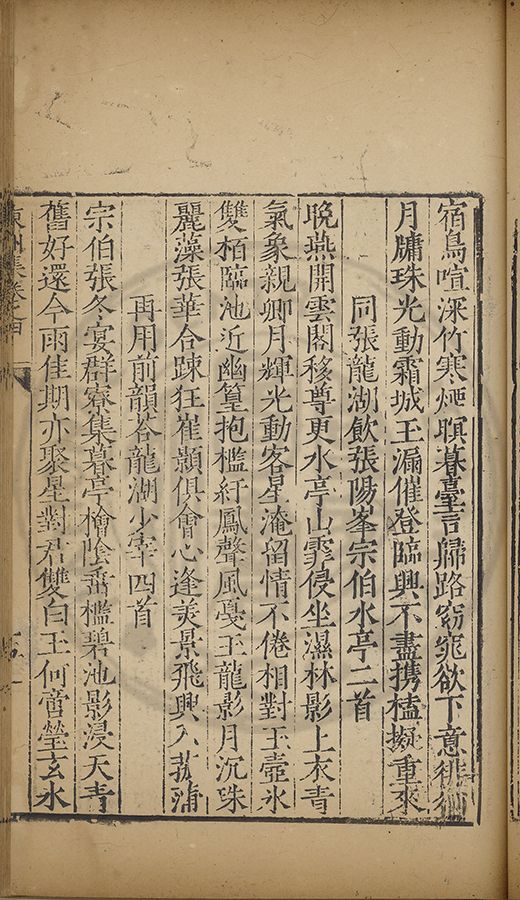 宿鳥喧深竹寒烟暝暮臺言歸路窈窕欲下意徘徊
月牗珠光動霜城玉漏催登臨興不盡携榼擬重來
同張龍湖飲張陽峯宗伯水亭二首
晚燕開雲閣移尊更水亭山霏侵坐濕林影上衣青
氣象親卿月輝光動客星淹留情不倦相對玉壺氷
雙栢臨池近幽篁抱檻紆鳳聲風戞玉龍影月沉珠
麗藻張華合踈狂崔顥俱會心逢美景飛興入菰蒲
再用前韻荅龍湖少宰四首
宗伯張冬宴群寮集暮亭檜陰垂檻碧池影浸天青
舊好還今雨佳期亦聚星對君雙白玉何啻瑩玄水
東洲集卷之四